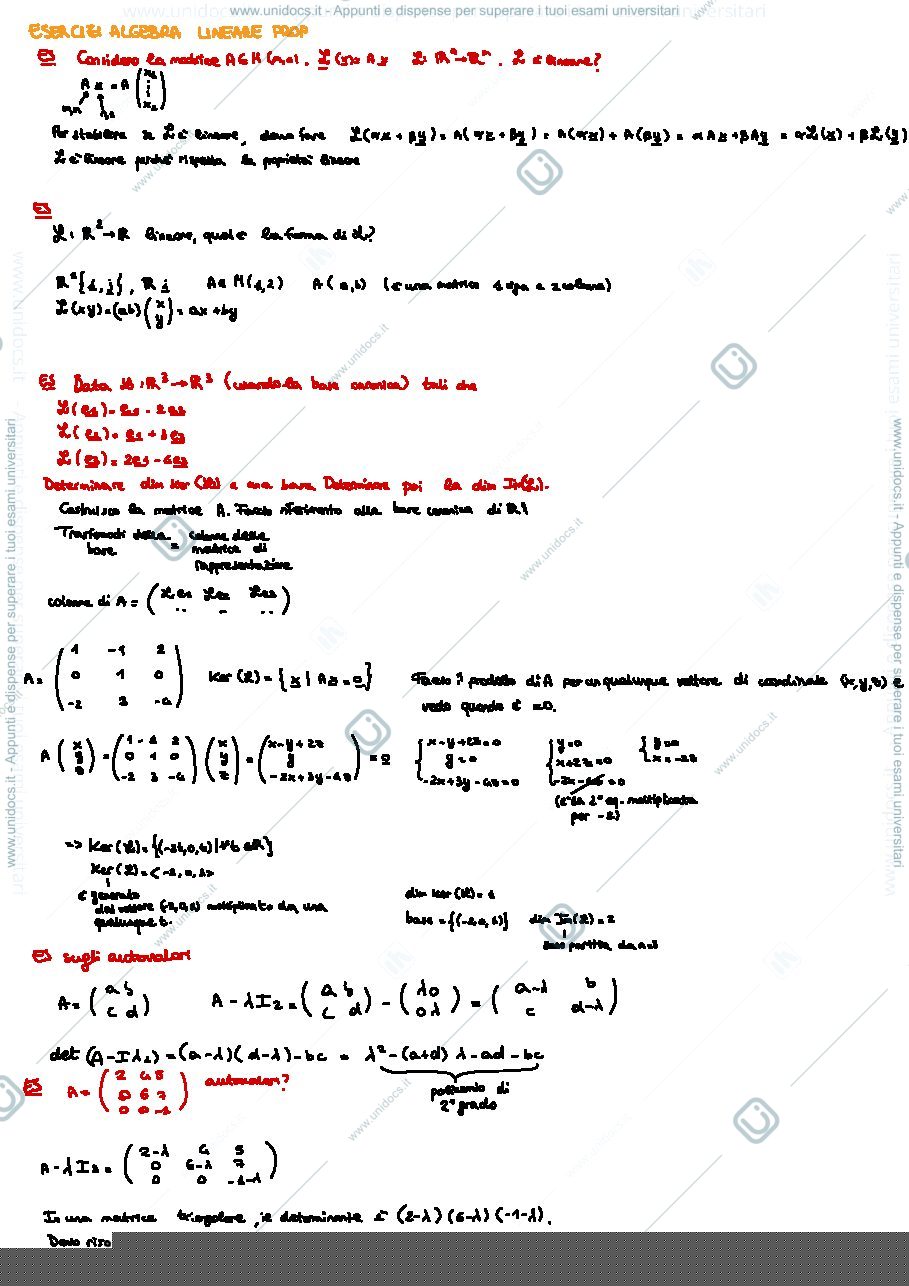 www.unidocs.it - Appunti e dispense per superare i tuoi esami universitari
ESERCIZI ALGEBRA LINEARE PROP
ES Considero la matrice A∈M(m,n), L(x)= Ax L: Rⁿ→Rᵐ. L è lineare?
Per stabilire se L è lineare, devo fare L(αx + βy) = A(αx + βy) = A(αx) + A(βy) = αAx + βAy = αL(x) + βL(y)
L è lineare perché rispetta la proprietà lineare
ES
L: R²→R lineare, qual è la forma di L?
R²{i, j}, R i A∈M(1,2) A(a,b) (è una matrice 1 riga e 2 colonne)
L(xy)=(ab)(x y)= ax+by
ES Data L: R³→R³ (usando la base canonica) tali che
L(e1)= e1 - 2e3
L(e3)= 2e1-4e3
Determinare dim ker(L) e una base. Determinare poi la dim Im(L).
Costruisco la matrice A. Faccio riferimento alla base canonica di R³
Trasformati della base = colonne della matrice di rappresentazione
colonne di A = (Le1 Le2 Le3)
A= (1 -1 2
0 1 0
-2 3 -4)
Ker(L)= {x | Ax=0}
Faccio il prodotto di A per un qualunque vettore di coordinate (x,y,z) e
vedo quando è =0.
A (x y z) = (1 -1 2 0 1 0 -2 3 -4) (x y z) = (x-y+2z y -2x+3y-4z) = 0
{x-y+2z=0 y=0 -2x+3y-4z=0
{y=0 x+2z=0 -2x-4z=0
{y=0 x=-2z
(è la 2ª eq. moltiplicata
per -2)
=> Ker(L)= {(-2t,0,t)|∀t∈R}
Ker(L)=<-2,0,1>
è generato
dal vettore (-2,0,1) moltiplicato da una
qualunque t.
dim ker(L)=1
base={(-2,0,1)} dim Im(L)=2
ES sugli autovalori
A= (a b c d) A-λI2 = (a b c d) - (λ 0 0 λ) = (a-λ b c d-λ)
det (A-Iλ2) = (a-λ)(d-λ)-bc = λ²-(a+d)λ-ad-bc
polinomio di
2° grado
ES A= (2 4 5 0 6 7 0 0 -1) autovalori?
A-λI3= (2-λ 4 5 0 6-λ 7 0 0 -1-λ)
In una matrice triangolare, il determinante è (2-λ)(6-λ)(-1-λ).
www.unidocs.it - Appunti e dispense per superare i tuoi esami universitari
www.unidocs.it - Appunti e dispense per superare i tuoi esami universitari